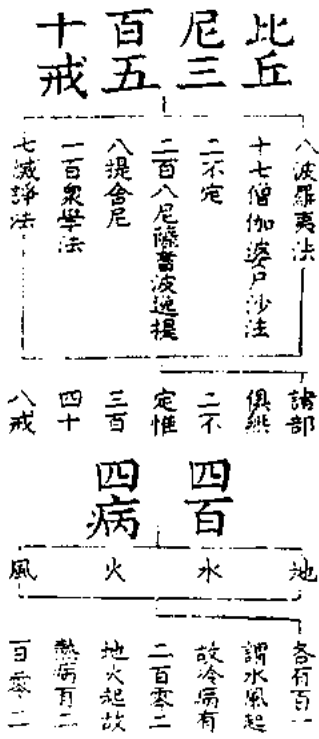 比丘
尼三
百五
十戒
八波羅夷法
十七僧伽婆尸沙法
二不定
二百八尼薩耆波逸提
八提舍尼
一百衆學法
七滅諍法
諸部
俱無
二不
定惟
三百
四十
八戒
四百
四病
地
水
火
風
各有百一
謂水風起
故冷病有
二百零二
地火起故
熱病有二
百零二